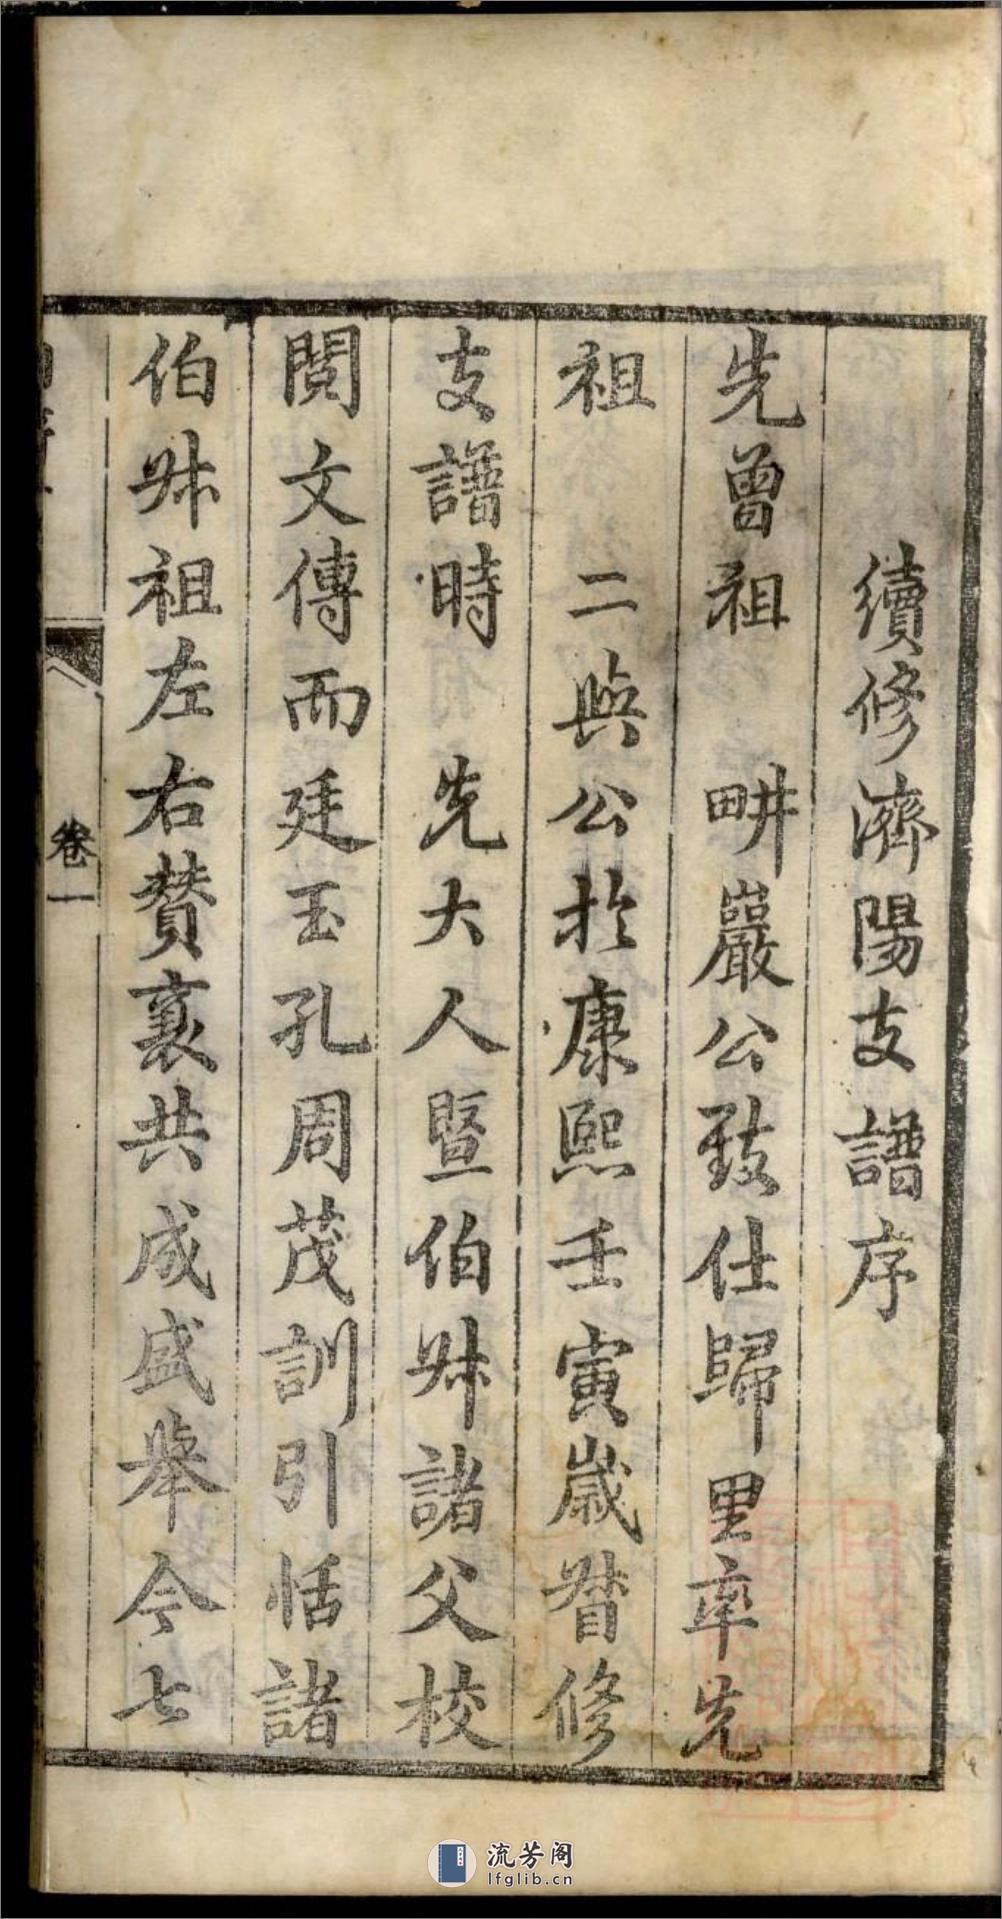 續修濟陽支譜序
先曾祖　畊巖公致仕歸里率先
祖　二與公於康熙壬寅歲督修
支譜時　先大人暨伯叔諸父校
閱文傳而廷玉孔周茂訓引恬諸
伯叔祖左右贊襄共成盛舉今七
卷一
流芳阁
lfglib.cn